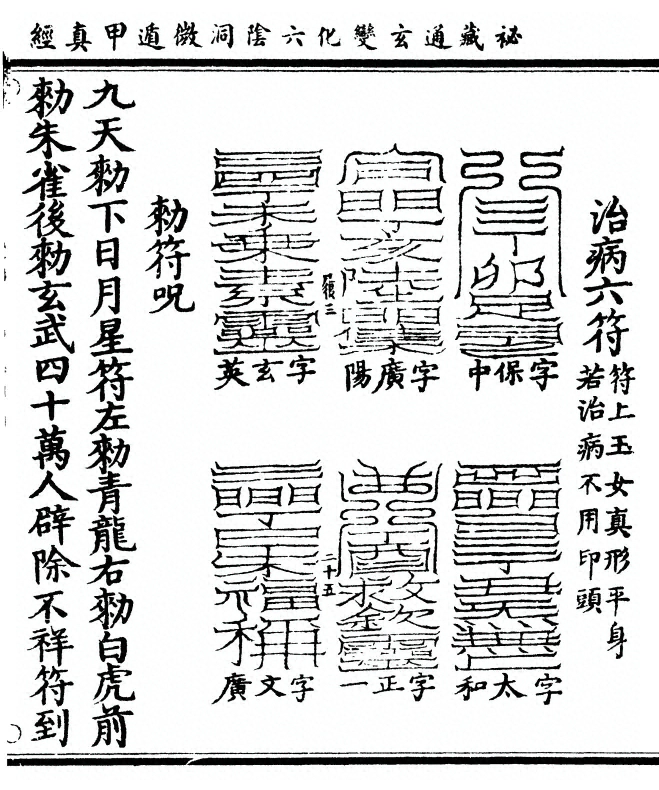 祕藏通玄變化六陰洞微遁甲真經
治病六符
符上玉女真形平身
若治病不用印頭
字保中
字太和
字廣陽
字正一
二十五
字玄英
字文廣
勑符呪
九天勑下日月星符左勑青龍右勑白虎前
勑朱雀後勑玄武四十萬人辟除不祥符到